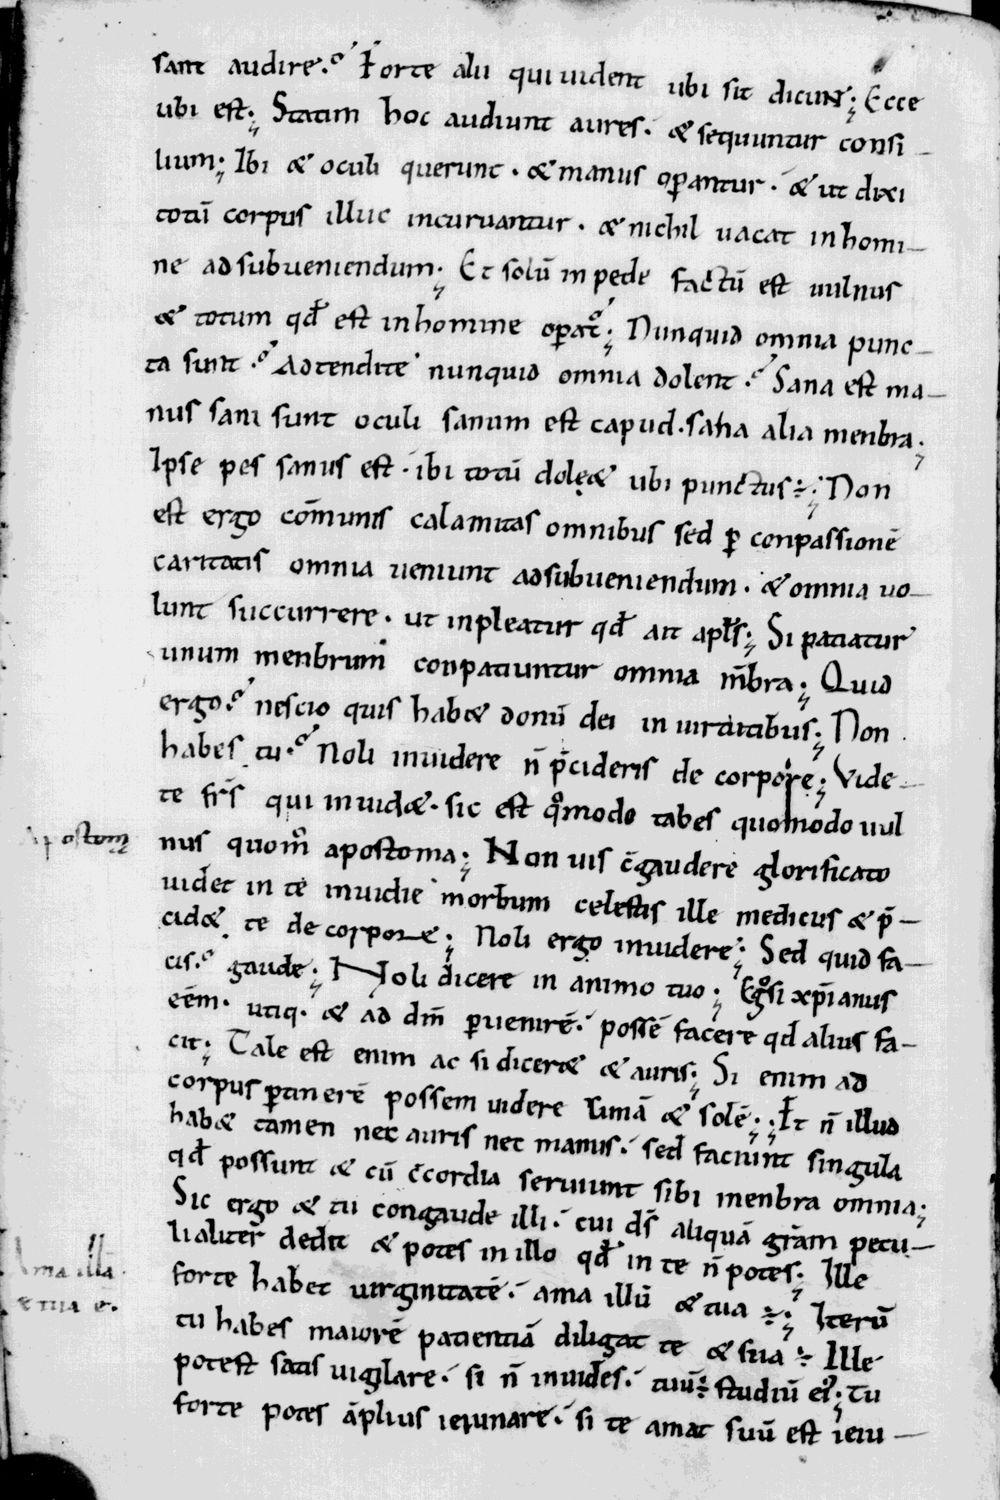 sant audire. Forte alii qui uident ubi sit dicunt; Ecce
ubi est; Statim hoc audiunt aures. & sequuntur consi
lium; Ibi & oculi querunt. & manus opantur. & ut dixi
totū corpus illuc incuruantur. & nichil uacat in homi
ne ad subueniendum; Et solū in pede factū est uulnus
& totum qđ est in homine opat; Nunquid omnia punc
ta sunt? Adtendite nunquid omnia dolent? Sana est ma
nus sani sunt oculi sanum est capud. sana alia menbra;
Ipse pes sanus est. ibi totū dol& ubi punctus ÷; Non
est ergo cōmunis calamitas omnibus sed ꝑ conpassionē
caritatis omnia ueniunt ad subueniendum. & omnia uo
lunt succurrere. ut inpleatur qđ ait apłs; Si patiatur
unum menbrum conpatiuntur omnia m̄bra; Quid
ergo? nescio quis hab& donū dei in uirtutibus; Non
habes tu? Noli inuidere n̄ p̄cideris de corpore; Vide
te fr̄s qui inuid&. sic est qomodo tabes quomodo uul
nus quom̄ apostoma; Non uis c̄gaudere glorificato
uidet in te inuidie morbum celestis ille medicus & p̄
cid& te de corpore; Noli ergo inuidere; Sed quid fa
cis? gaude; Noli dicere in animo tuo; Ego si xp̄ianus
eēm. utiq. & ad dm̄ ꝑuenirē. possē facere qđ alius fa
cit; Tale est enim ac si dicer& & auris; Si enim ad
corpus ꝑtinerē possem uidere limā & solē; Et n̄ illud
hab& tamen nec auris nec manus. sed faciunt singula
qđ possunt & cū c̄cordia seruiunt sibi menbra omnia;
Sic ergo & tu congaude illi. cui ds̄ aliquā grām pecu
lialiter dedit & potes in illo qđ in te n̄ potes; Ille
forte habet uirginitatē. ama illū & tua ÷; Iterū
tu habes maiorē patientiā diligat te & sua ÷ Ille
potest satis uigilare. si n̄ inuides. tuū ÷ studiū ei; Tu
forte potes āplius ieiunare. si te amat suū est ieiu
Apostom
Ama illā
& tua ē.